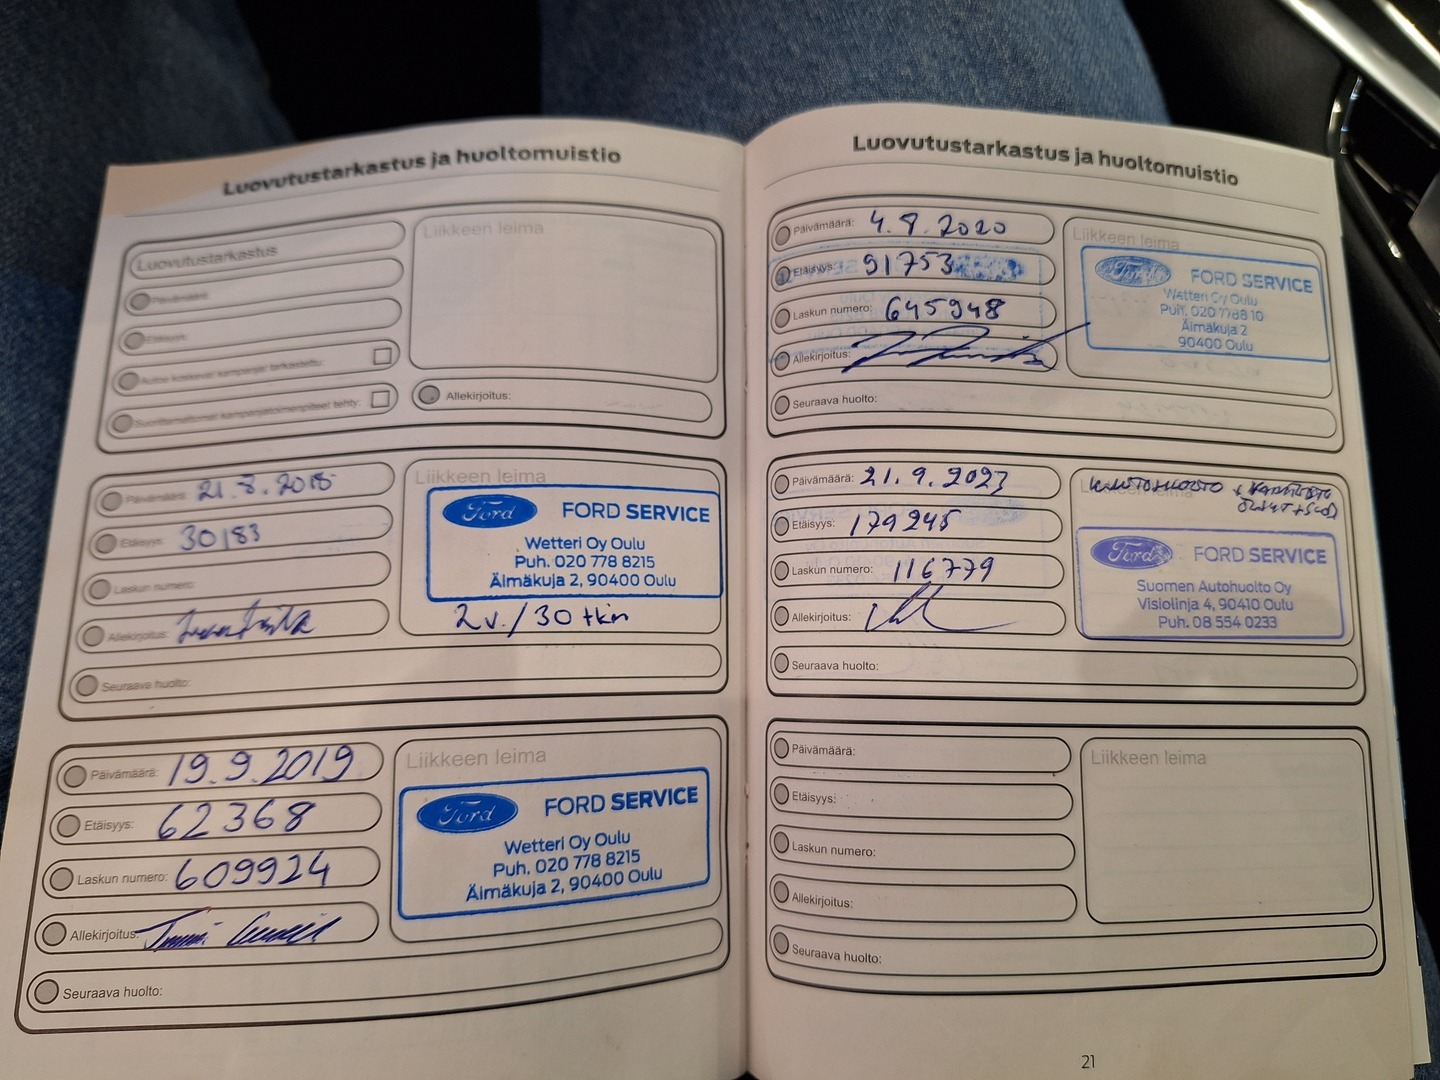 Luovutustarkastus ja huoltomuistio
Luovutustarkastus
Päivämäärä:
Etäisyys:
Autoa koskevat kampanjat tarkastettu:
Suorittamattomat kampanjatoimenpiteet tehty:
Liikkeen leima
Allekirjoitus:
Päivämäärä: 21.8.2018
Etäisyys: 30183
Laskun numero:
Allekirjoitus:
Seuraava huolto:
Liikkeen leima
Ford FORD SERVICE
Wetteri Oy Oulu
Puh. 020 778 8215
Äimäkuja 2, 90400 Oulu
2v./30 tkm
Päivämäärä: 19.9.2019
Etäisyys: 62368
Laskun numero: 609924
Allekirjoitus:
Seuraava huolto:
Liikkeen leima
Ford FORD SERVICE
Wetteri Oy Oulu
Puh. 020 778 8215
Äimäkuja 2, 90400 Oulu
Luovutustarkastus ja huoltomuistio
Päivämäärä: 4.9.2020
Etäisyys: 91753
Laskun numero: 645948
Allekirjoitus:
Seuraava huolto:
Liikkeen leima
Ford FORD SERVICE
Wetteri Oy Oulu
Puh. 020 778810
Äimäkuja 2
90400 Oulu
Päivämäärä: 21.9.2023
Etäisyys: 179245
Laskun numero: 116779
Allekirjoitus:
Seuraava huolto:
Liikkeen leima
Ford FORD SERVICE
Suomen Autohuolto Oy
Visiolinja 4, 90410 Oulu
Puh. 08 554 0233
Päivämäärä:
Etäisyys:
Laskun numero:
Allekirjoitus:
Seuraava huolto:
Liikkeen leima
21